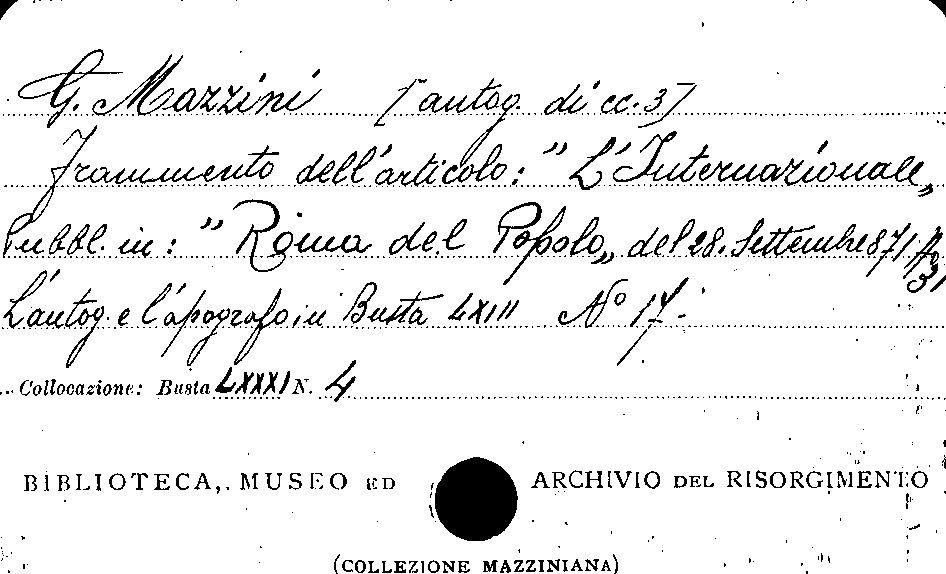 G. Mazzini [autog. di cc. 3]
Frammento dell'articolo: "L'Internazionale„
Pubbl. in: "Roma del Popolo„ del 28. Settembre 871 No 31
L'autog. e l'apografo in Busta LXIII No 17.
Collocazione: Busta LXXXI N. 4
BIBLIOTECA, MUSEO ED ARCHIVIO DEL RISORGIMENTO
(COLLEZIONE MAZZINIANA)